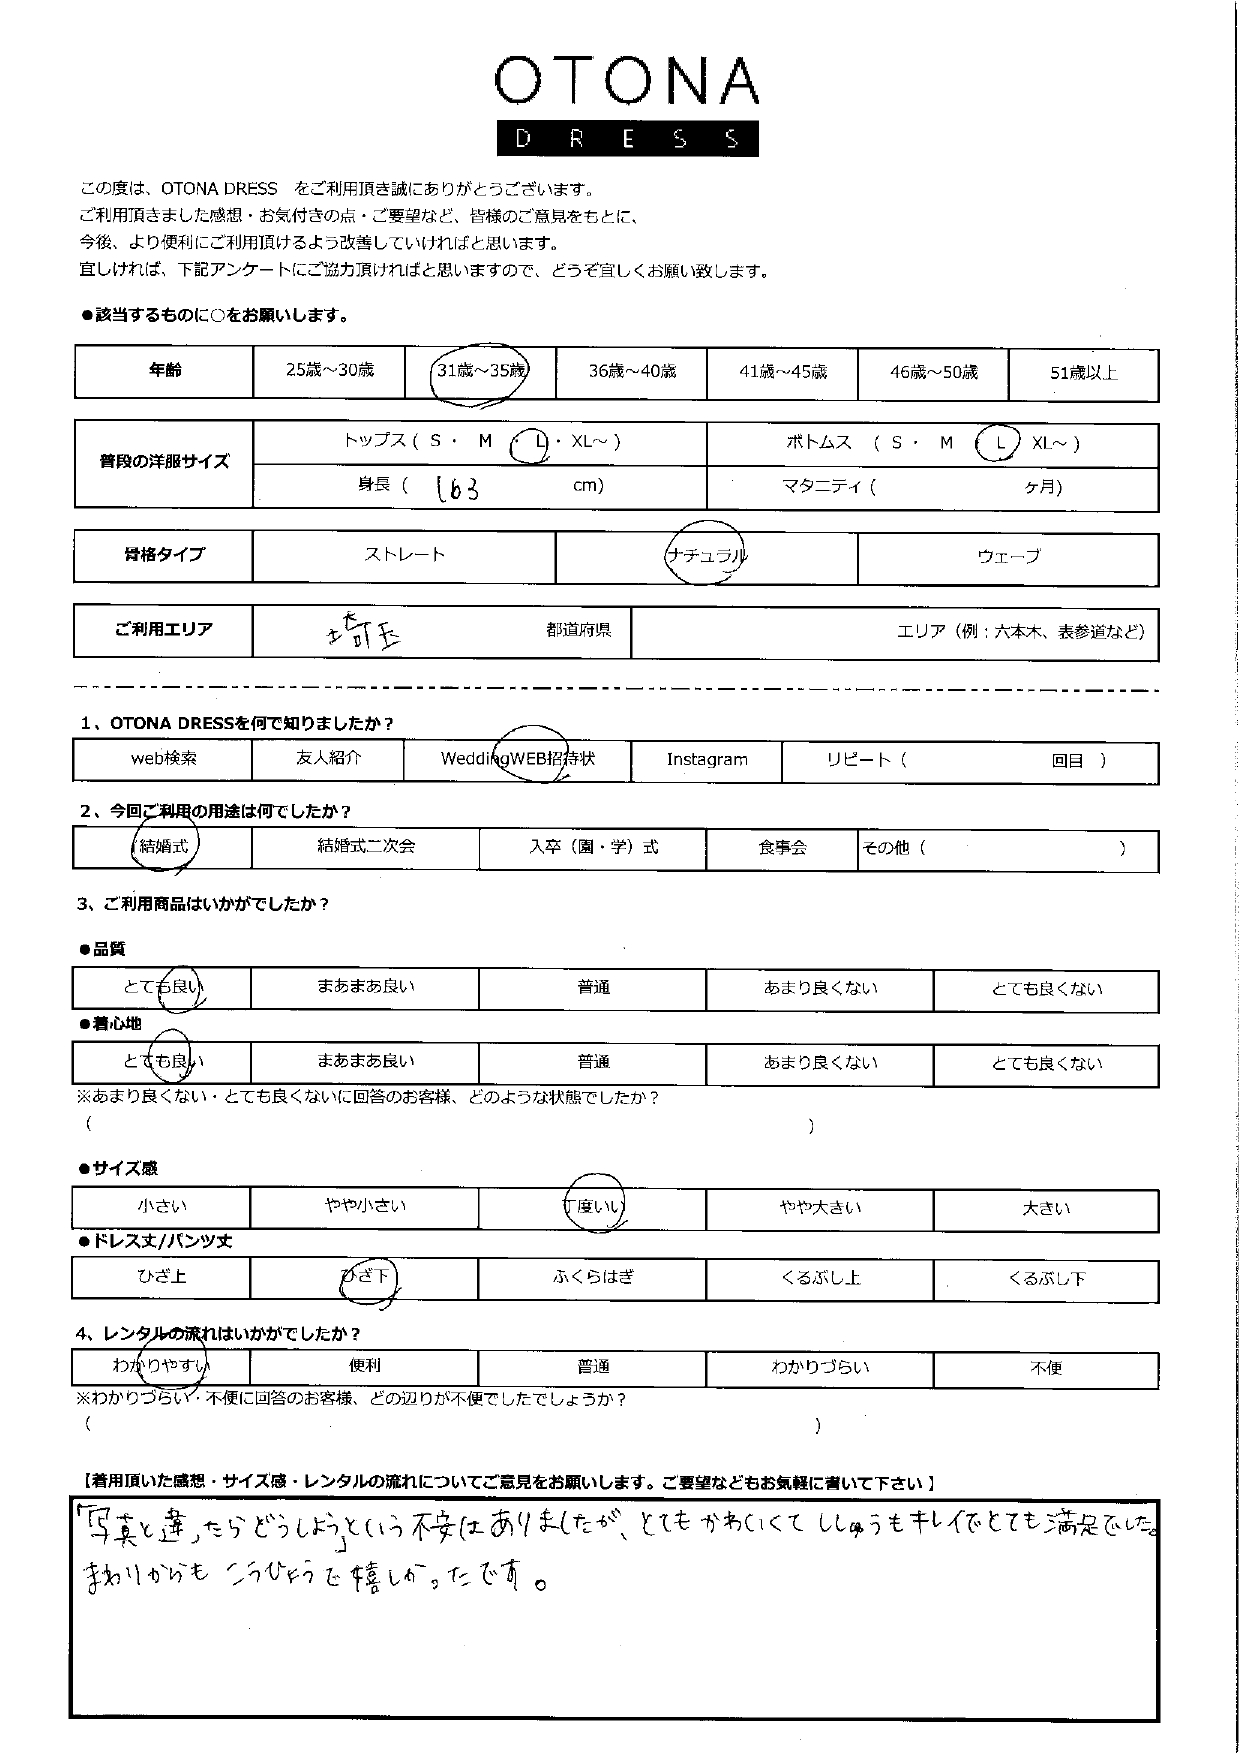 OTONA
DRESS
この度は、OTONA DRESS　をご利用頂き誠にありがとうございます。
ご利用頂きました感想・お気付きの点・ご要望など、皆様のご意見をもとに、
今後、より便利にご利用頂けるよう改善していければと思います。
宜しければ、下記アンケートにご協力頂ければと思いますので、どうぞ宜しくお願い致します。
●該当するものに○をお願いします。
年齢 25歳～30歳 31歳～35歳 36歳～40歳 41歳～45歳 46歳～50歳 51歳以上
普段の洋服サイズ トップス ( S ・ M ・ L ・ XL～ ) ボトムス ( S ・ M ・ L XL～ )
身長 ( 163 cm) マタニティ ( ヶ月)
骨格タイプ ストレート ナチュラル ウェーブ
ご利用エリア 埼玉 都道府県 エリア（例：六本木、表参道など）
1、OTONA DRESSを何で知りましたか？
web検索 友人紹介 WeddingWEB招待状 Instagram リピート ( 回目 )
2、今回ご利用の用途は何でしたか？
結婚式 結婚式二次会 入卒（園・学）式 食事会 その他 ( )
3、ご利用商品はいかがでしたか？
●品質
とても良い まあまあ良い 普通 あまり良くない とても良くない
●着心地
とても良い まあまあ良い 普通 あまり良くない とても良くない
※あまり良くない・とても良くないに回答のお客様、どのような状態でしたか？
( )
●サイズ感
小さい やや小さい 丁度いい やや大きい 大きい
●ドレス丈/パンツ丈
ひざ上 ひざ下 ふくらはぎ くるぶし上 くるぶし下
4、レンタルの流れはいかがでしたか？
わかりやすい 便利 普通 わかりづらい 不便
※わかりづらい・不便に回答のお客様、どの辺りが不便でしたでしょうか？
( )
【着用頂いた感想・サイズ感・レンタルの流れについてご意見をお願いします。ご要望などもお気軽に書いて下さい】
「写真と違ったらどうしよう」という不安はありましたが、とてもかわいくてししゅうもキレイでとても満足でした。
まわりからもこうひょうで嬉しかったです。